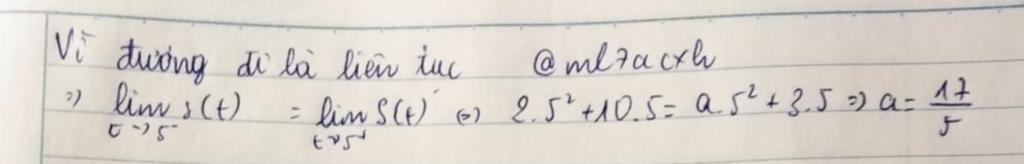 Vì đường đi là liên tục @ml7acxh
=) lim t→5⁻ s(t) = lim t→5⁺ S(t) (=) 2.5² + 10.5 = a.5² + 3.5 =) a = 17/5